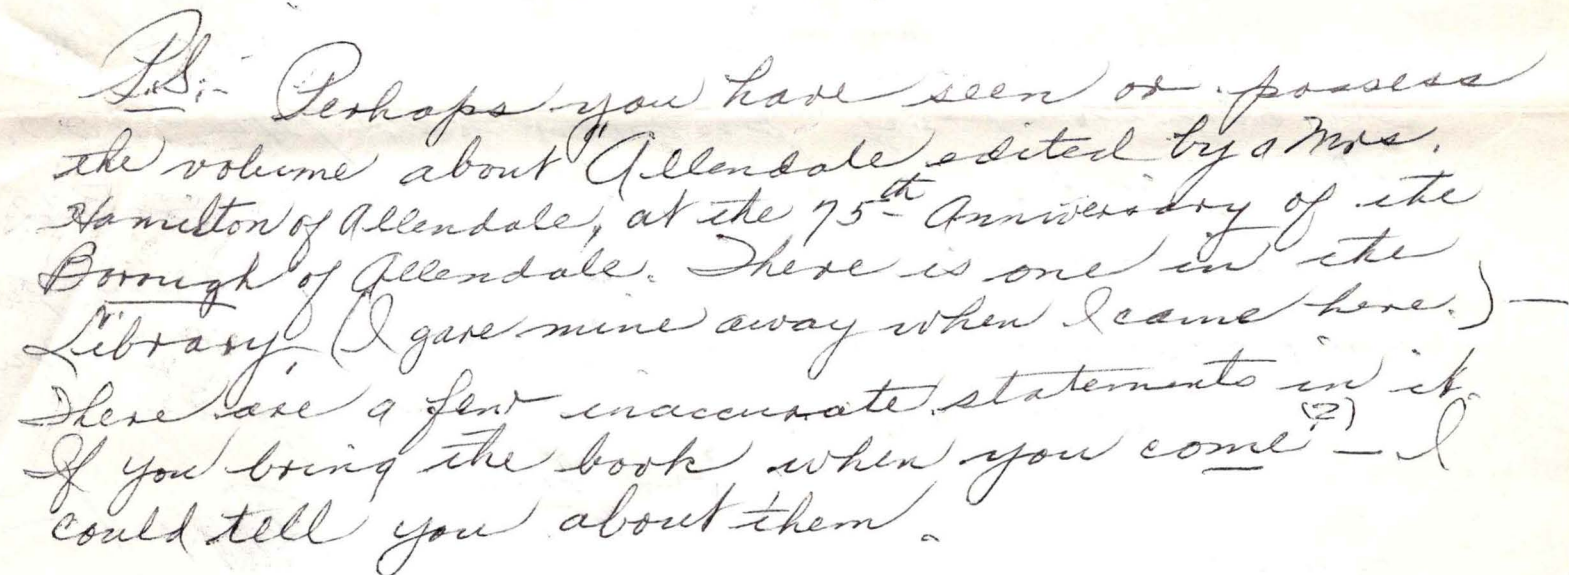 P.S.:- Perhaps you have seen or possess
the volume about "Allendale edited by a Mrs.
Hamilton of Allendale, at the 75th Anniversary of the
Borough of Allendale. There is one in the
Library. (I gave mine away when I came here.) —
There are a few inaccurate statements in it.
If you bring the book when you come (?) — I
could tell you about them.